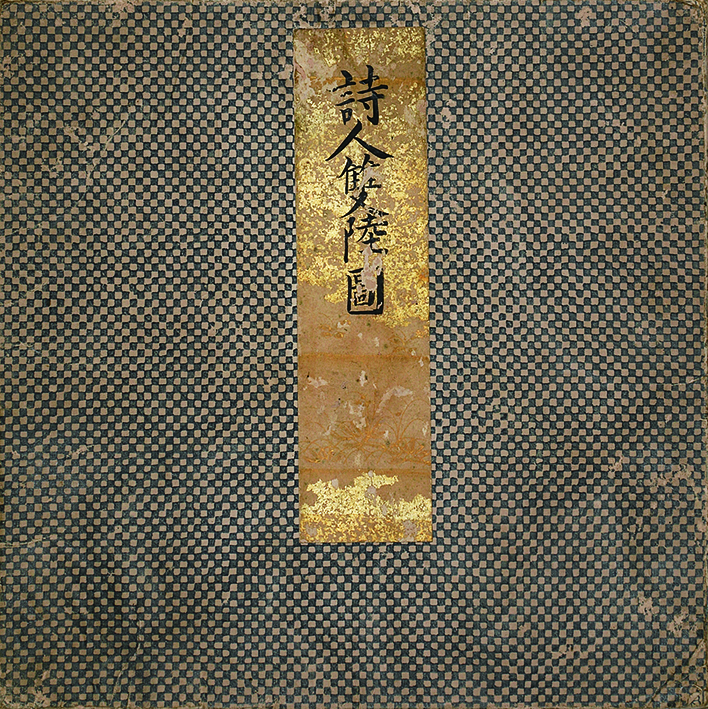 詩人雙陸圖